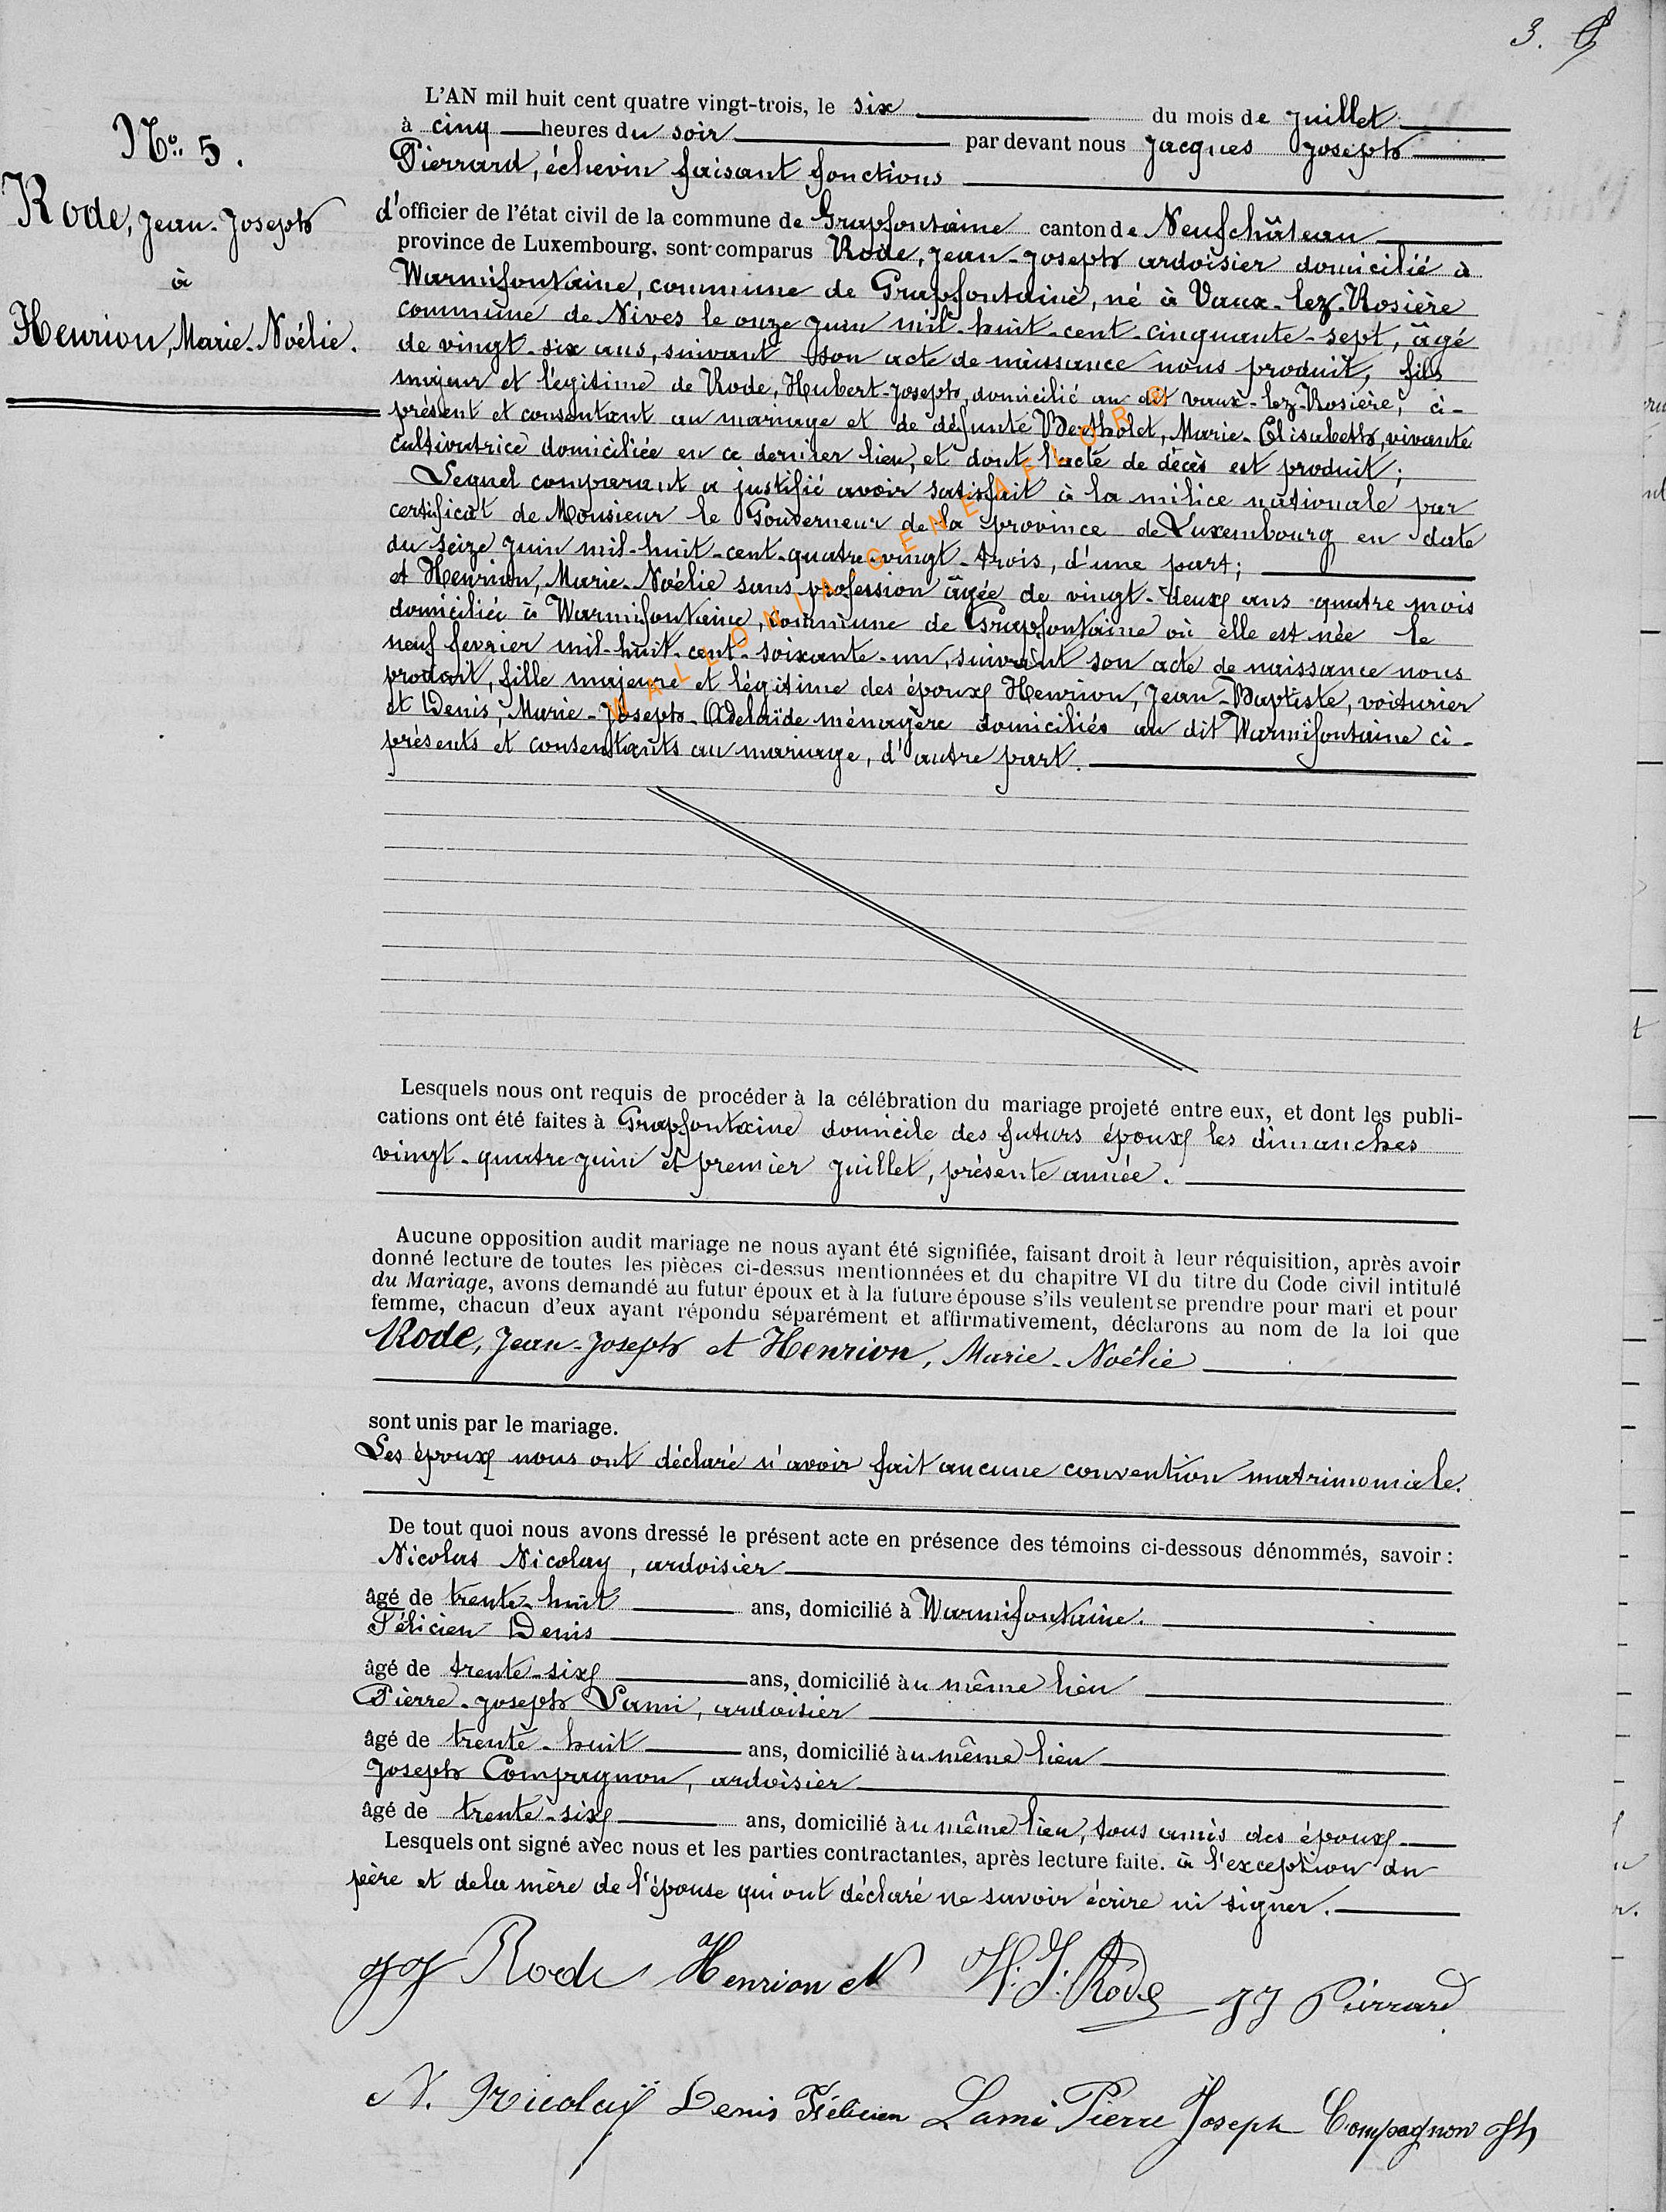 3.
L'AN mil huit cent quatre vingt-trois, le six du mois de Juillet
à cinq heures du soir par devant nous Jacques Joseph
Pierrard, échevin faisant fonctions
d'officier de l'état civil de la commune de Grapfontaine canton de Neufchâteau
province de Luxembourg, sont comparus Rode, Jean-Joseph ardoisier domicilié à
Warmifontaine, commune de Grapfontaine, né à Vaux-lez-Rosière
commune de Nives le onze Juin mil-huit-cent-cinquante-sept, âgé
de vingt-six ans, suivant son acte de naissance nous produit, fils
majeur et légitime de Rode, Hubert-Joseph, domicilié au dit vaux-lez-Rosière, ci-
présent et consentant au mariage et de défunte Bertholet, Marie-Elisabeth, vivante
cultivatrice domiciliée en ce dernier lieu, et dont l'acte de décès est produit;
Lequel comparant a justifié avoir satisfait à la milice nationale par
certificat de Monsieur le Gouverneur de la province de Luxembourg en date
du seize Juin mil-huit-cent-quatre-vingt-trois, d'une part;
et Henrion, Marie-Noélie sans profession âgée de vingt-deux ans quatre mois
domiciliée à Warmifontaine, commune de Grapfontaine où elle est née le
neuf fevrier mil-huit-cent-soixante-un, suivant son acte de naissance nous
produit, fille majeure et légitime des époux Henrion, Jean-Baptiste, voiturier
et Denis, Marie-Joseph-Adelaïde ménagère domiciliés au dit Warmifontaine ci-
présents et consentants au mariage, d'autre part.
No 5.
Rode, Jean-Joseph
à
Henrion, Marie-Noélie.
WALLONIA GENEAFLORE
Lesquels nous ont requis de procéder à la célébration du mariage projeté entre eux, et dont les publi-
cations ont été faites à Grapfontaine domicile des futurs époux les dimanches
vingt-quatre juin et premier Juillet, présente année.
Aucune opposition audit mariage ne nous ayant été signifiée, faisant droit à leur réquisition, après avoir
donné lecture de toutes les pièces ci-dessus mentionnées et du chapitre VI du titre du Code civil intitulé
du Mariage, avons demandé au futur époux et à la future épouse s'ils veulent se prendre pour mari et pour
femme, chacun d'eux ayant répondu séparément et affirmativement, déclarons au nom de la loi que
Rode, Jean-Joseph et Henrion, Marie-Noélie
sont unis par le mariage.
Les époux nous ont déclaré n'avoir fait aucune convention matrimoniale.
De tout quoi nous avons dressé le présent acte en présence des témoins ci-dessous dénommés, savoir :
Nicolas Nicolay, ardoisier
âgé de trente-huit ans, domicilié à Warmifontaine.
Félicien Denis
âgé de trente-six ans, domicilié au même lieu
Pierre-Joseph Lami, ardoisier
âgé de trente-huit ans, domicilié au même lieu
Joseph Compagnon, ardoisier
âgé de trente-six ans, domicilié au même lieu, tous amis des époux
Lesquels ont signé avec nous et les parties contractantes, après lecture faite. à l'exception du
père et de la mère de l'épouse qui ont déclaré ne savoir écrire ni signer.
JJ Rode Henrion N H.J. Rode JJ Pierrard
N. Nicolaÿ Denis Félicien Lami Pierre Joseph Compagnon Jh